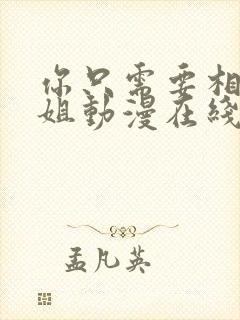 你只需要相
姐動漫在綫
孟凡英